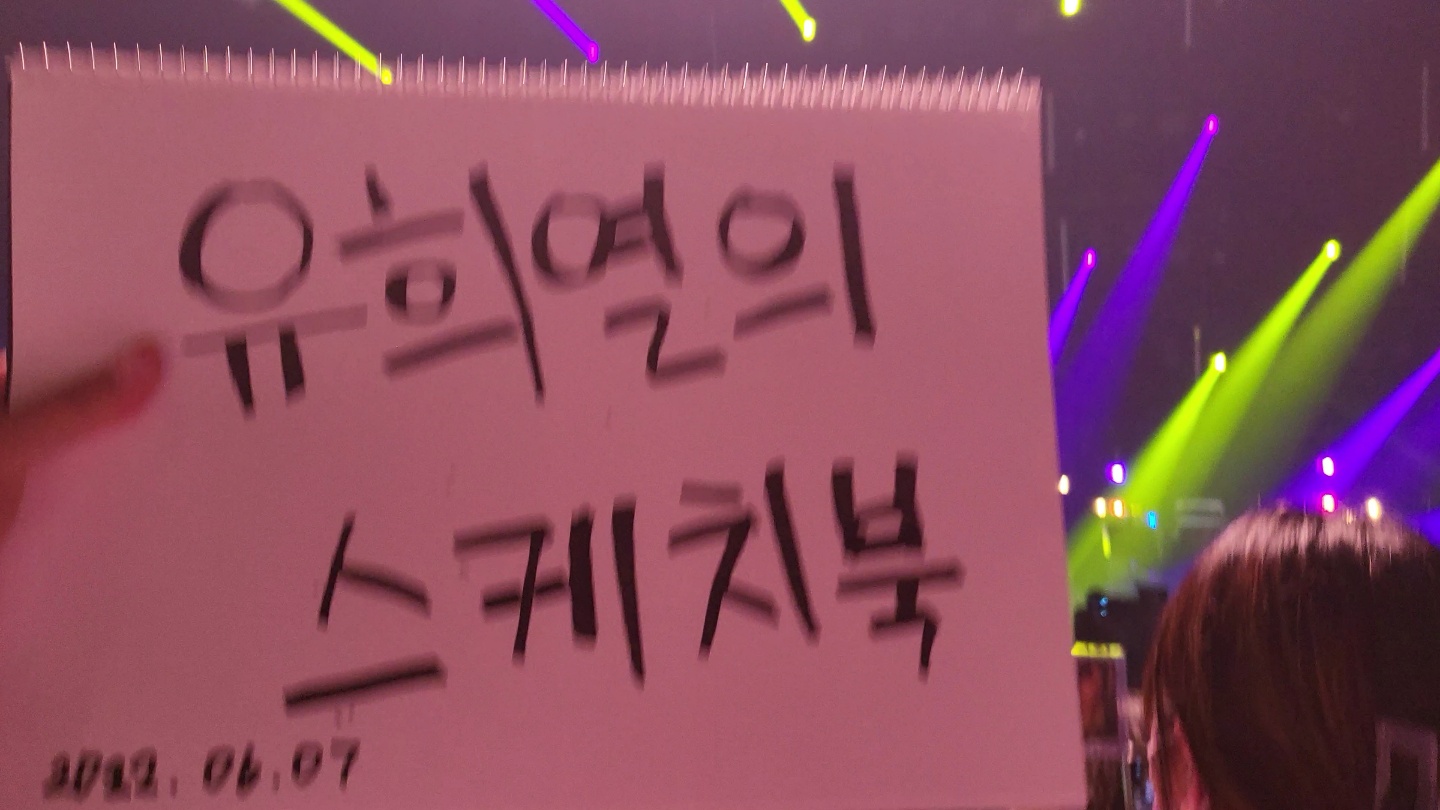 유희열의
스케치북
2022. 06. 07